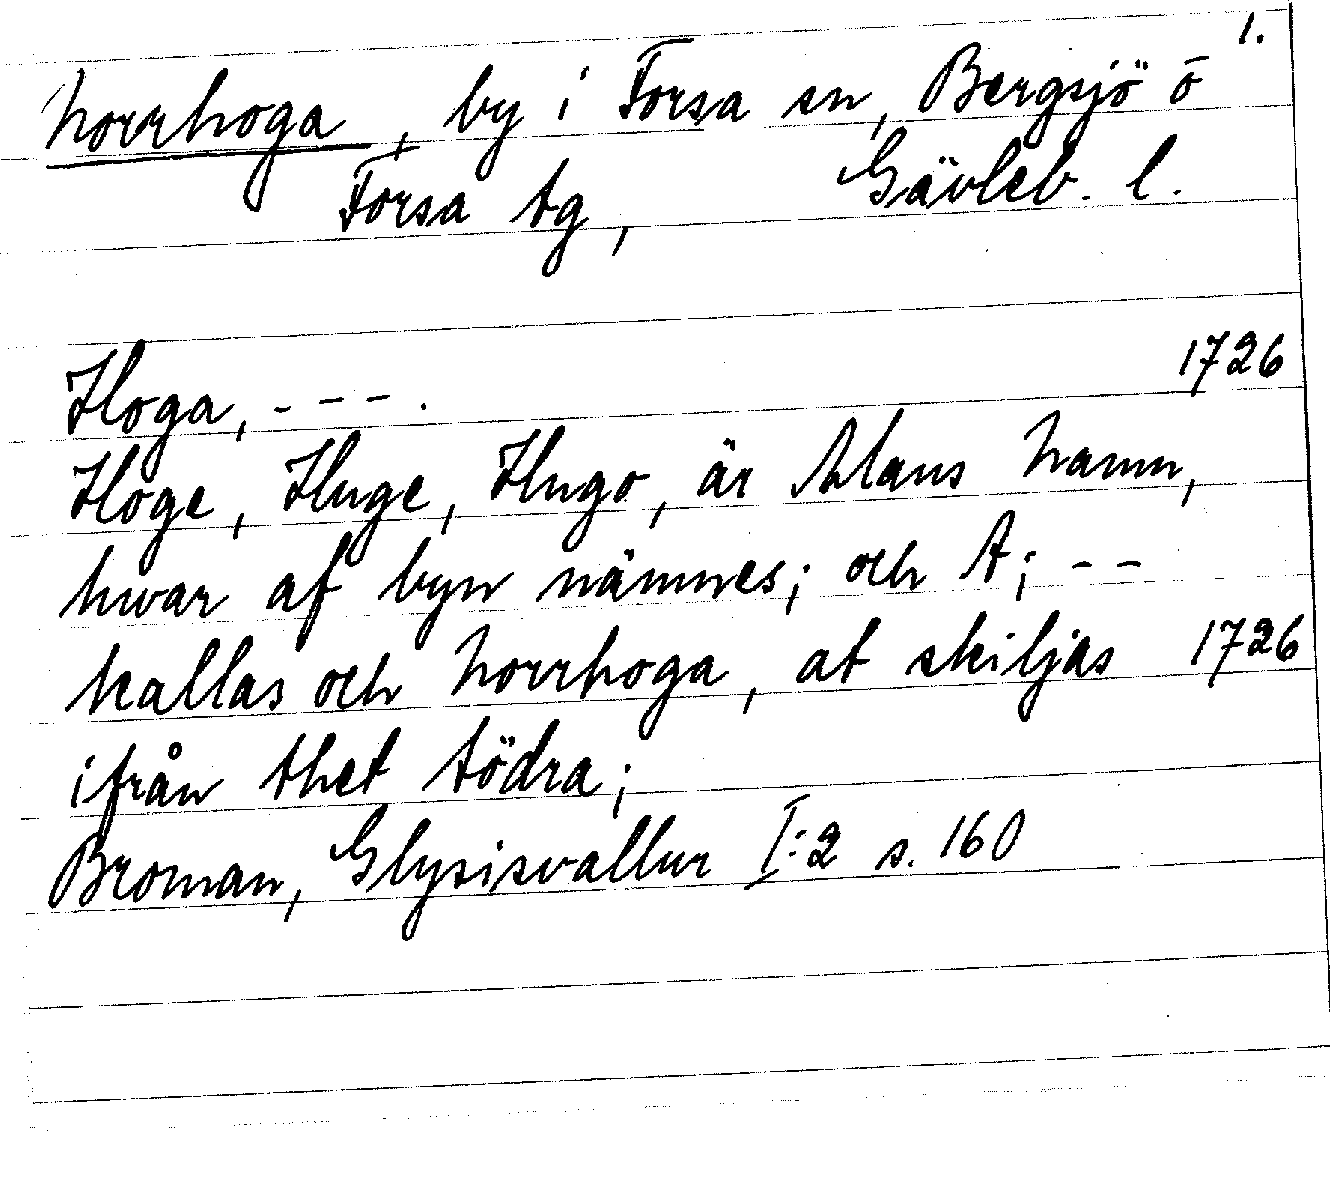 1.
Norrhoga, by i Forsa sn, Bergsjö o
Forsa tg, Gävleb. l.
Hoga, - - - . 1726
Höge, Huge, Hugo, är Mans Namn,
hwar af byn nämnes; och A; - -
kallas och Norrhoga, at skiljas 1726
ifrån thet Södra;
Broman, Glysisvallur I:2 s. 160